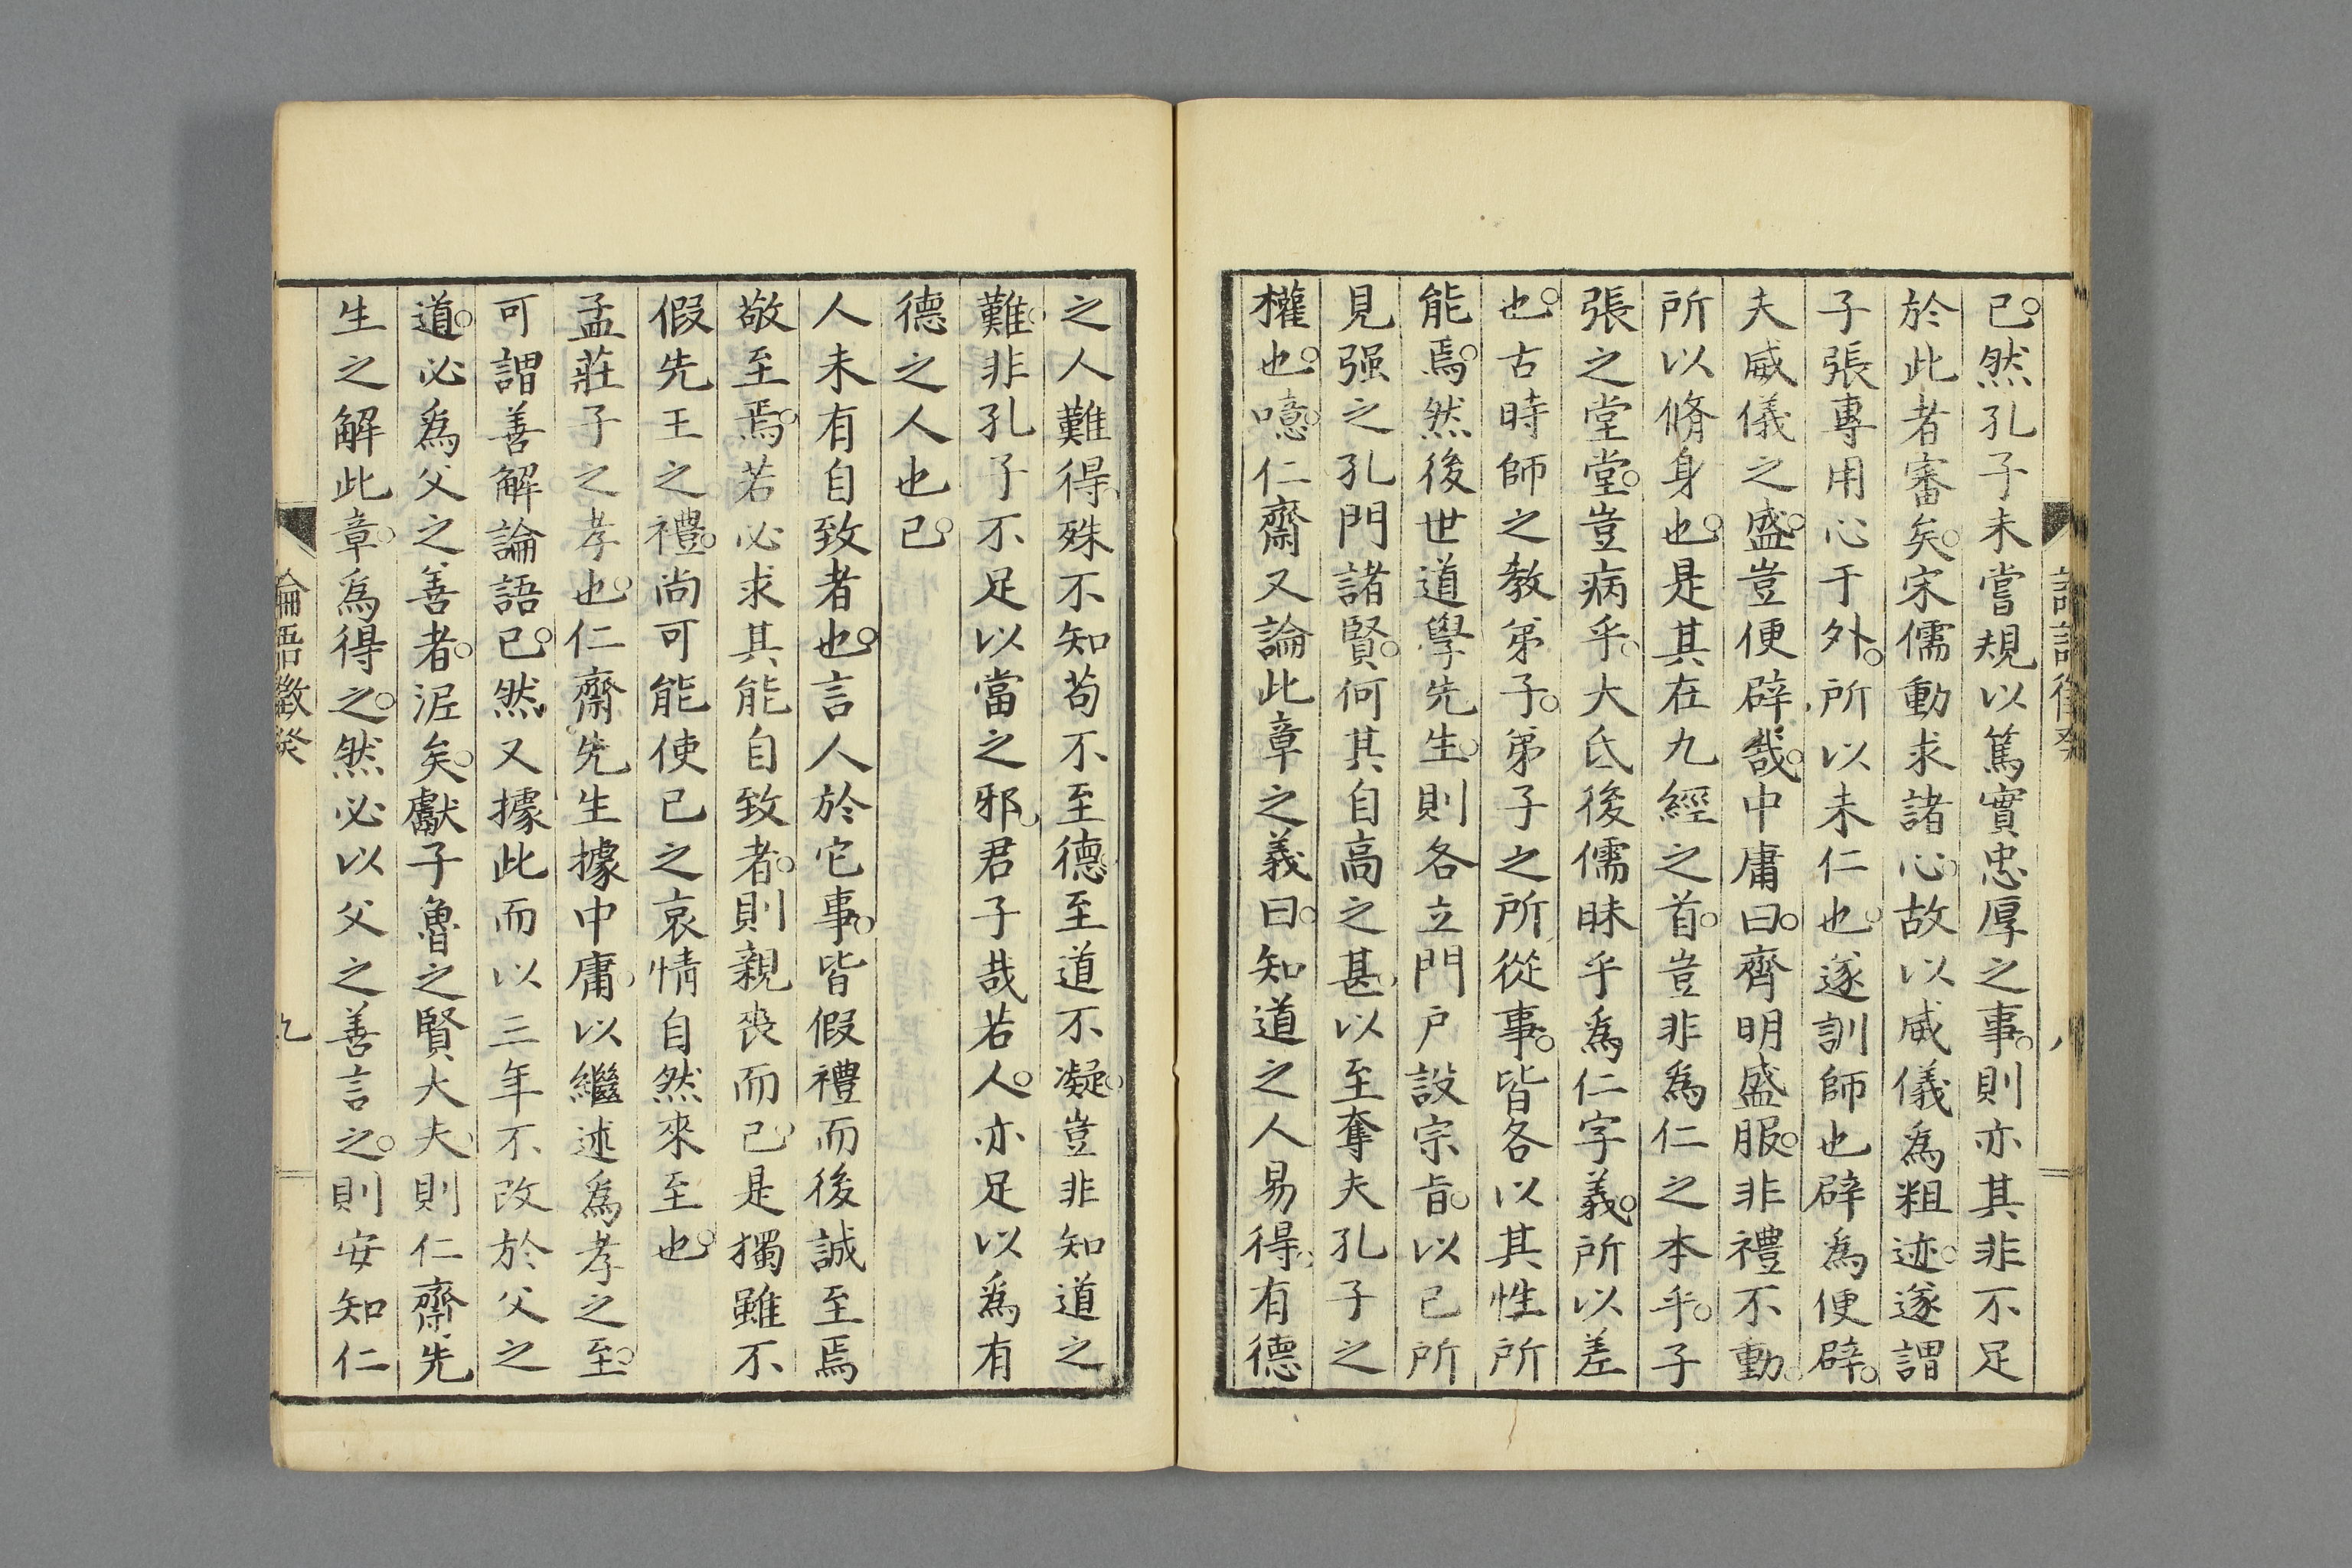 已。然孔子未嘗規以篤實忠厚之事。則亦其非不足
於此者審矣。宋儒動求諸心。故以威儀爲粗迹。遂謂
子張專用心于外。所以未仁也。遂訓師也辟爲便辟。
夫威儀之盛。豈便辟哉。中庸曰。齊明盛服。非禮不動。
所以脩身也。是其在九經之首。豈非爲仁之本乎。子
張之堂堂。豈病乎。大氐後儒昧乎爲仁字義。所以差
也。古時師之教弟子。弟子之所從事。皆各以其性所
能焉。然後世道學先生。則各立門戶設宗旨。以己所
見强之孔門諸賢。何其自高之甚。以至奪夫孔子之
權也。噫。仁齋又論此章之義曰。知道之人易得。有德
之人難得。殊不知苟不至德至道不凝。豈非知道之
難。非孔子不足以當之邪。君子哉若人。亦足以爲有
德之人也已。
人未有自致者也。言人於它事。皆假禮而後誠至焉
敬至焉。若必求其能自致者。則親喪而已。是獨雖不
假先王之禮。尚可能使已之哀情自然來至也。
孟莊子之孝也。仁齋先生據中庸。以繼述爲孝之至。
可謂善解論語已。然又據此而以三年不改於父之
道。必爲父之善者。泥矣。獻子魯之賢大夫。則仁齋先
生之解此章。爲得之。然必以父之善言之。則安知仁
論語徵癸
九